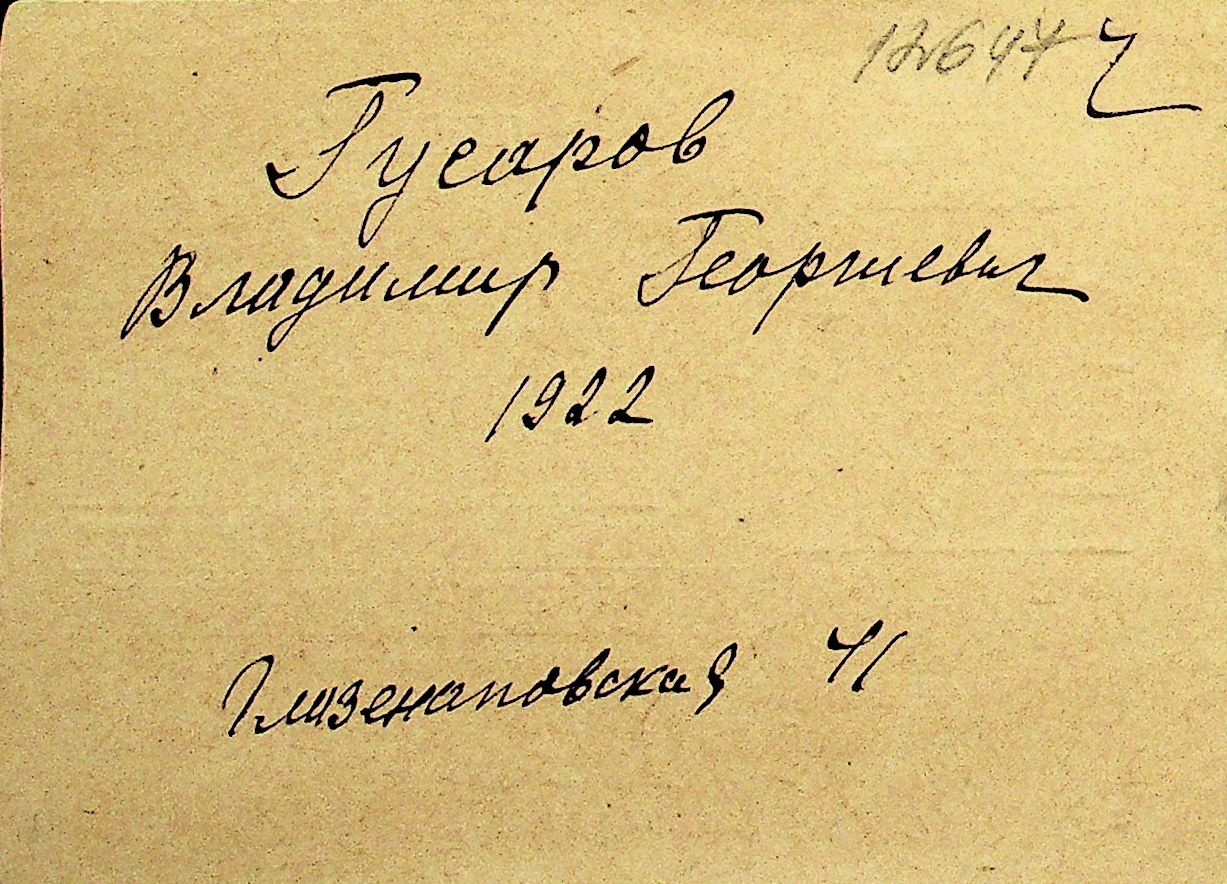 12647
Гусаров
Владимир Георгиевич
1922
Глазенаповская 41